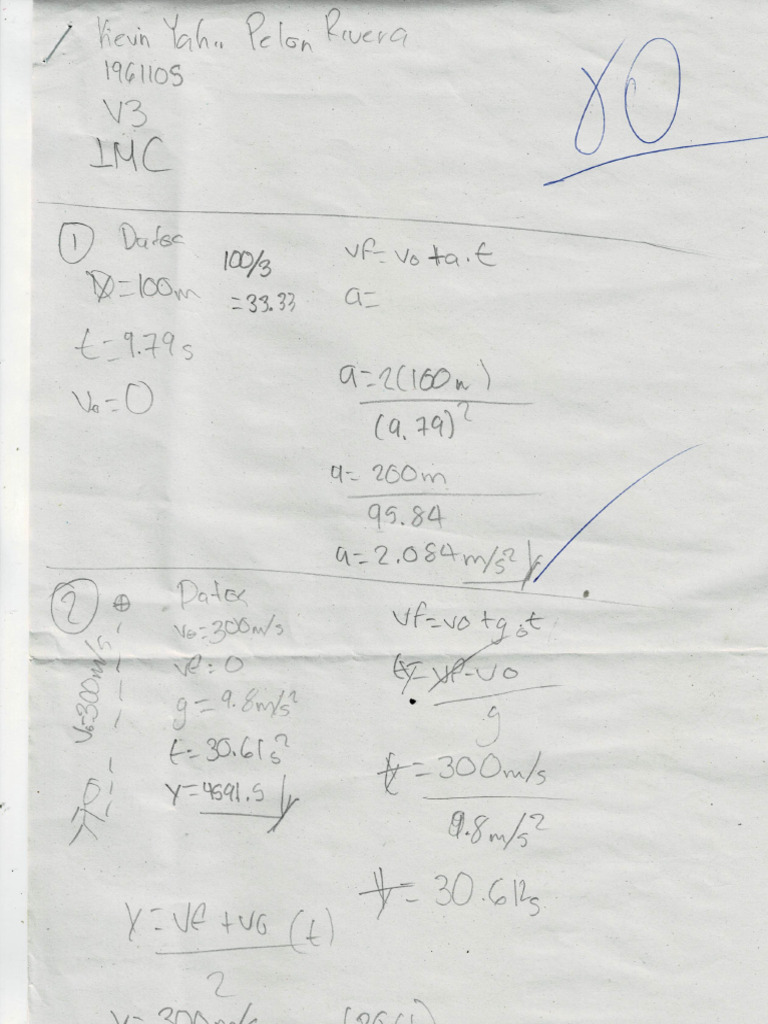 Kevin Yahu Pelon Rivera
1961105
V3
IMC
80
① Datos
X=100m
t=9.79s
V₀=0
100/3
=33.33
vf=v₀+a.t
a=
a=2(100m)
(9.79)²
a=200m
95.84
a=2.084m/s²
② Datos
V₀=300m/s
v₀=300m/s
vf=0
g=9.8m/s²
t=30.61s²
y=4591.5
vf=vo+g.t
t=vf-vo
g
t=300m/s
9.8m/s²
t=30.612s
Y=vf+vo (t)
2
y=300m/s